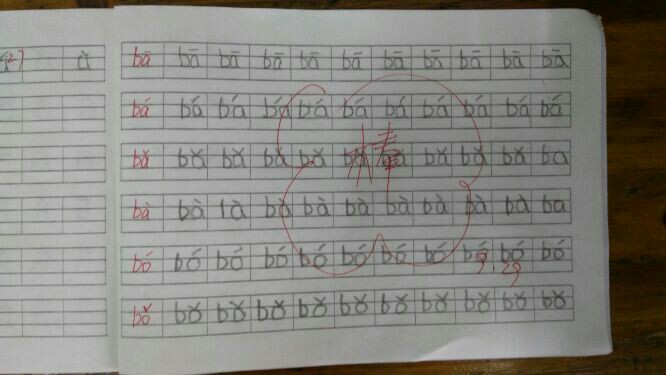 à bā bā bā bā bā bā bā bā bā bā bā
bá bá bá bá bá bá bá bá bá bá bá
bǎ bǎ bǎ bǎ bǎ bǎ bǎ bǎ bǎ ba
棒
bà bà là bà bà bà bà bà bà bà ba
bó bó bó bó bó bó bó bó bó bó bó
9.29
bǒ bǒ bǒ bǒ bǒ bǒ bǒ bǒ bǒ bǒ bǒ